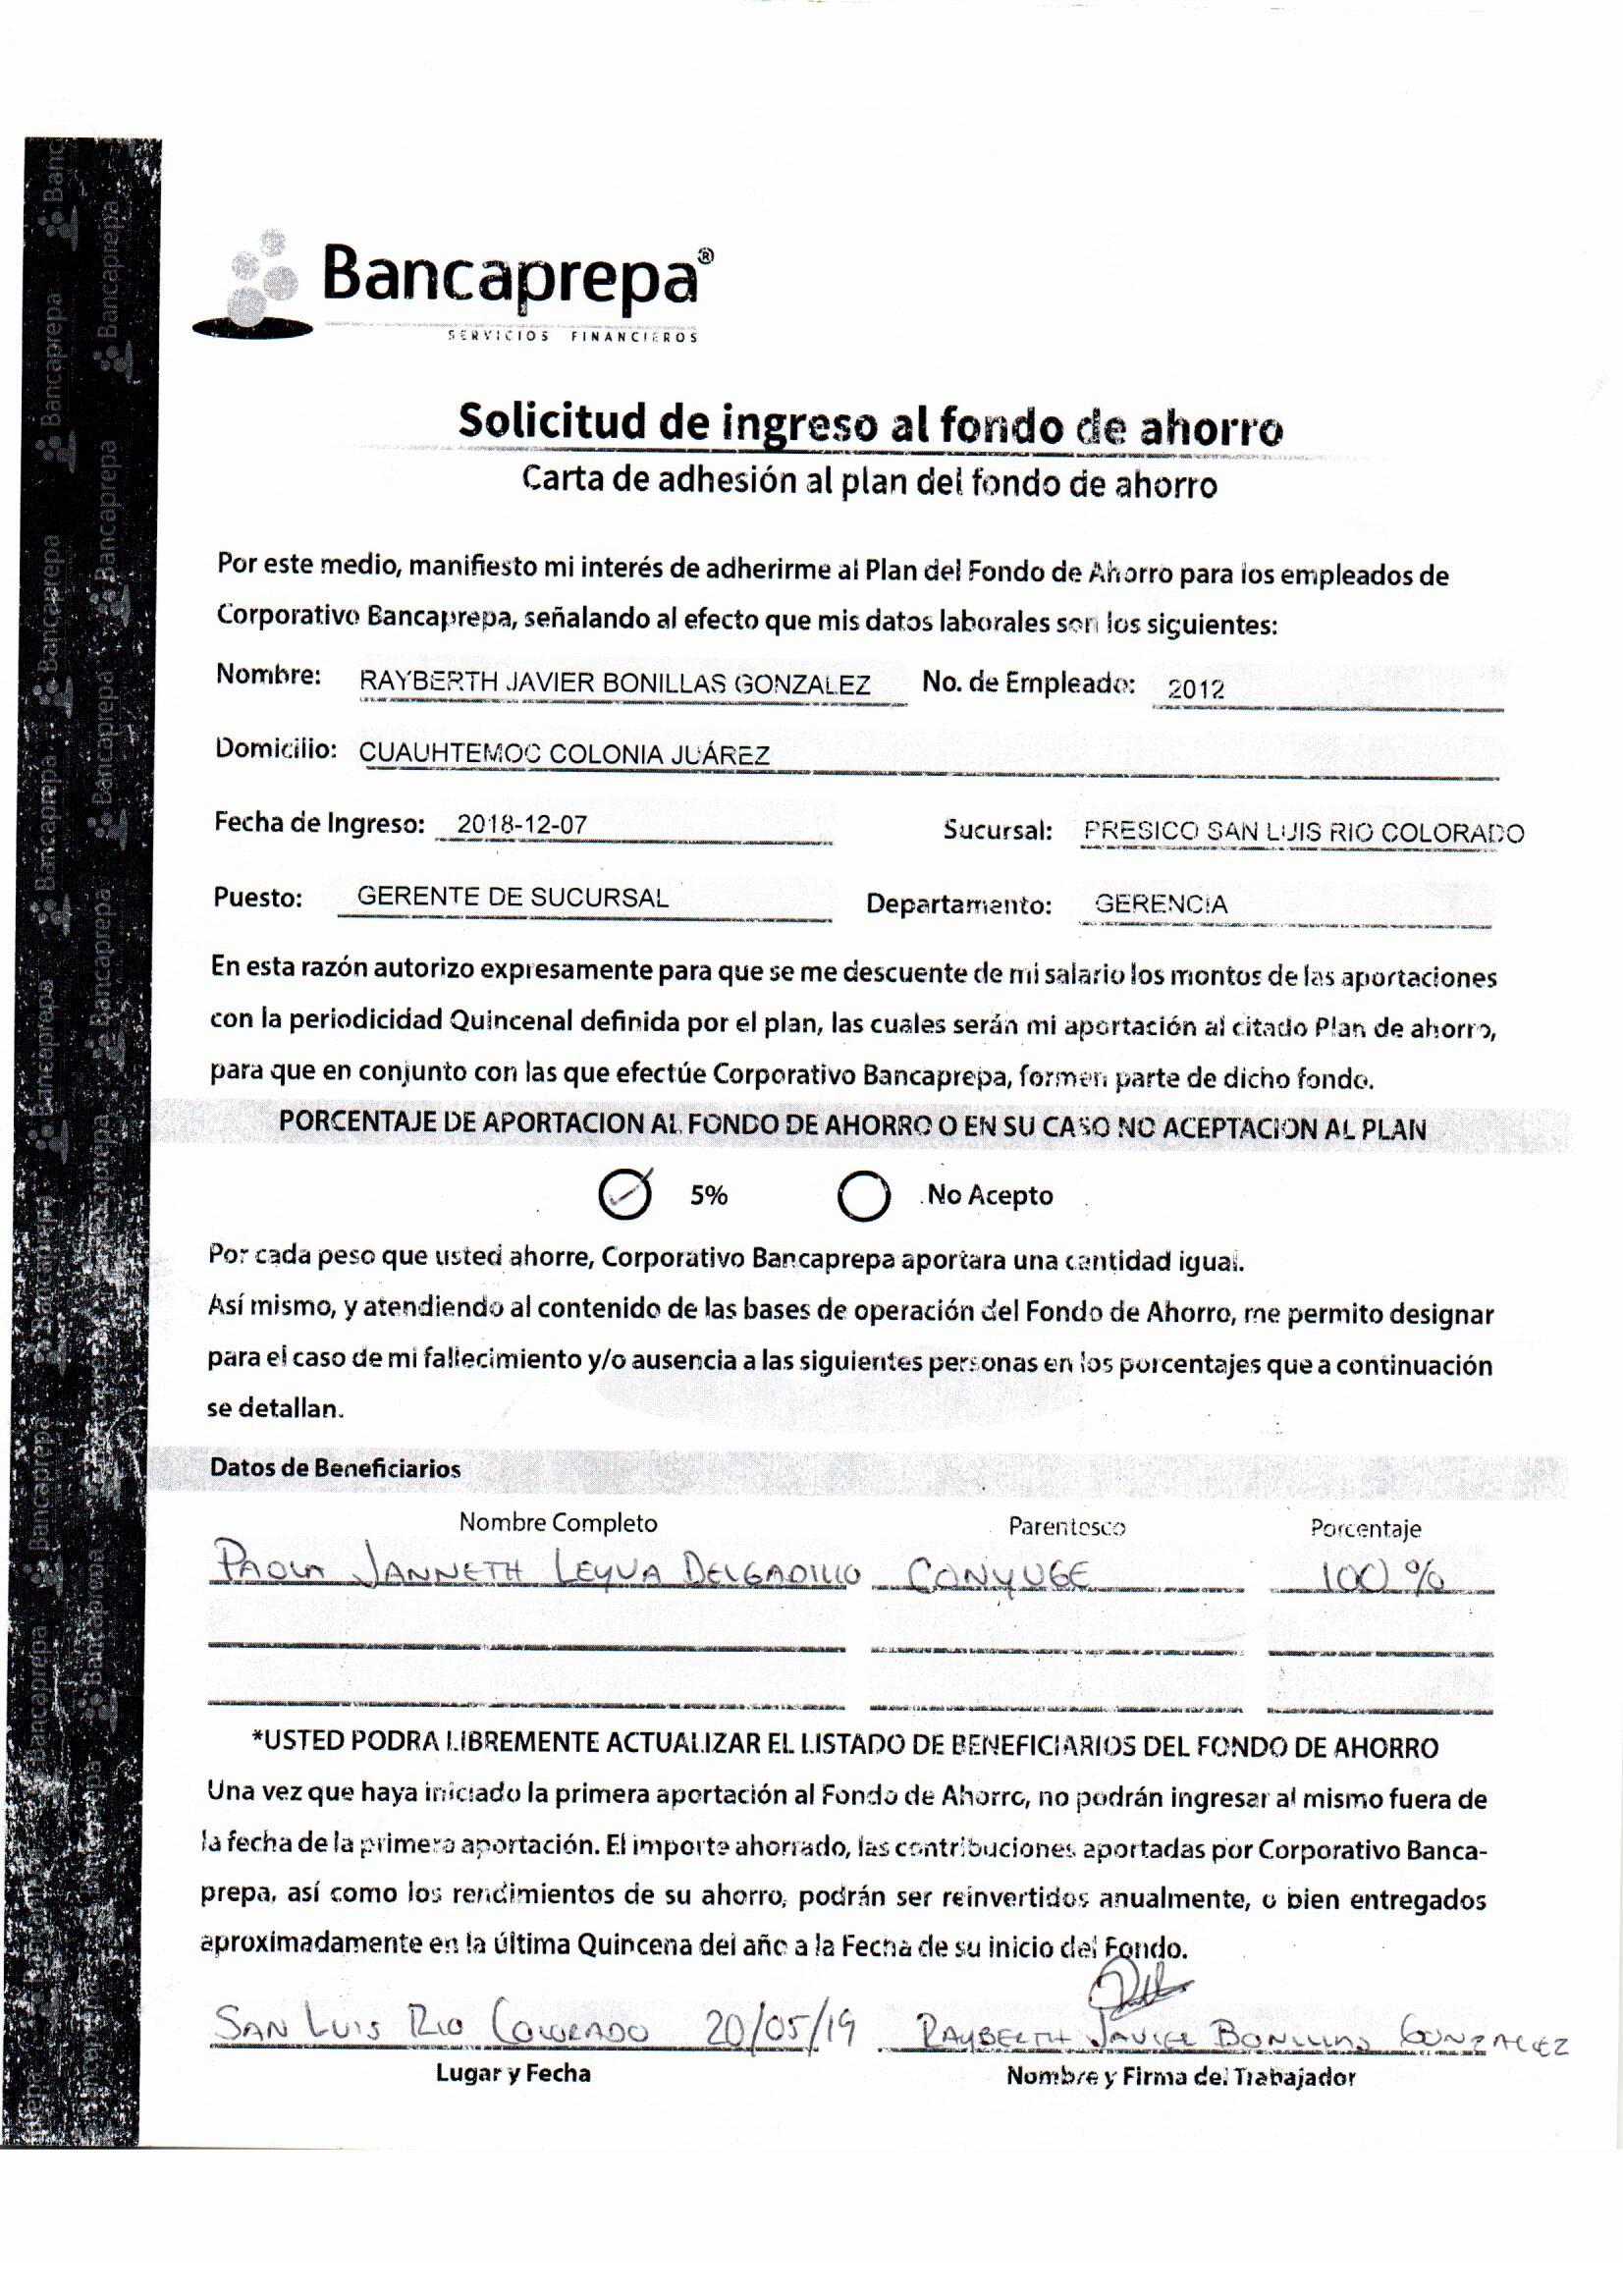 Bancaprepa®
SERVICIOS FINANCIEROS
Solicitud de ingreso al fondo de ahorro
Carta de adhesión al plan del fondo de ahorro
Por este medio, manifiesto mi interés de adherirme al Plan del Fondo de Ahorro para los empleados de
Corporativo Bancaprepa, señalando al efecto que mis datos laborales son los siguientes:
Nombre: RAYBERTH JAVIER BONILLAS GONZALEZ No. de Empleado: 2012
Domicilio: CUAUHTEMOC COLONIA JUÁREZ
Fecha de Ingreso: 2018-12-07 Sucursal: PRESICO SAN LUIS RIO COLORADO
Puesto: GERENTE DE SUCURSAL Departamento: GERENCIA
En esta razón autorizo expresamente para que se me descuente de mi salario los montos de las aportaciones
con la periodicidad Quincenal definida por el plan, las cuales serán mi aportación al citado Plan de ahorro,
para que en conjunto con las que efectúe Corporativo Bancaprepa, formen parte de dicho fondo.
PORCENTAJE DE APORTACION AL FONDO DE AHORRO O EN SU CASO NO ACEPTACION AL PLAN
5% No Acepto
Por cada peso que usted ahorre, Corporativo Bancaprepa aportara una cantidad igual.
Así mismo, y atendiendo al contenido de las bases de operación del Fondo de Ahorro, me permito designar
para el caso de mi fallecimiento y/o ausencia a las siguientes personas en los porcentajes que a continuación
se detallan.
Datos de Beneficiarios
Nombre Completo Parentesco Porcentaje
PAOLA JANNETH LEYVA DELGADILLO CONYUGE 100 %
*USTED PODRA LIBREMENTE ACTUALIZAR EL LISTADO DE BENEFICIARIOS DEL FONDO DE AHORRO
Una vez que haya iniciado la primera aportación al Fondo de Ahorro, no podrán ingresar al mismo fuera de
la fecha de la primera aportación. El importe ahorrado, las contribuciones aportadas por Corporativo Banca-
prepa, así como los rendimientos de su ahorro, podrán ser reinvertidos anualmente, o bien entregados
aproximadamente en la última Quincena del año a la Fecha de su inicio del Fondo.
SAN LUIS RIO COLORADO 20/05/19 RAYBERTH JAVIER BONILLAS GONZALEZ
Lugar y Fecha Nombre y Firma del Trabajador